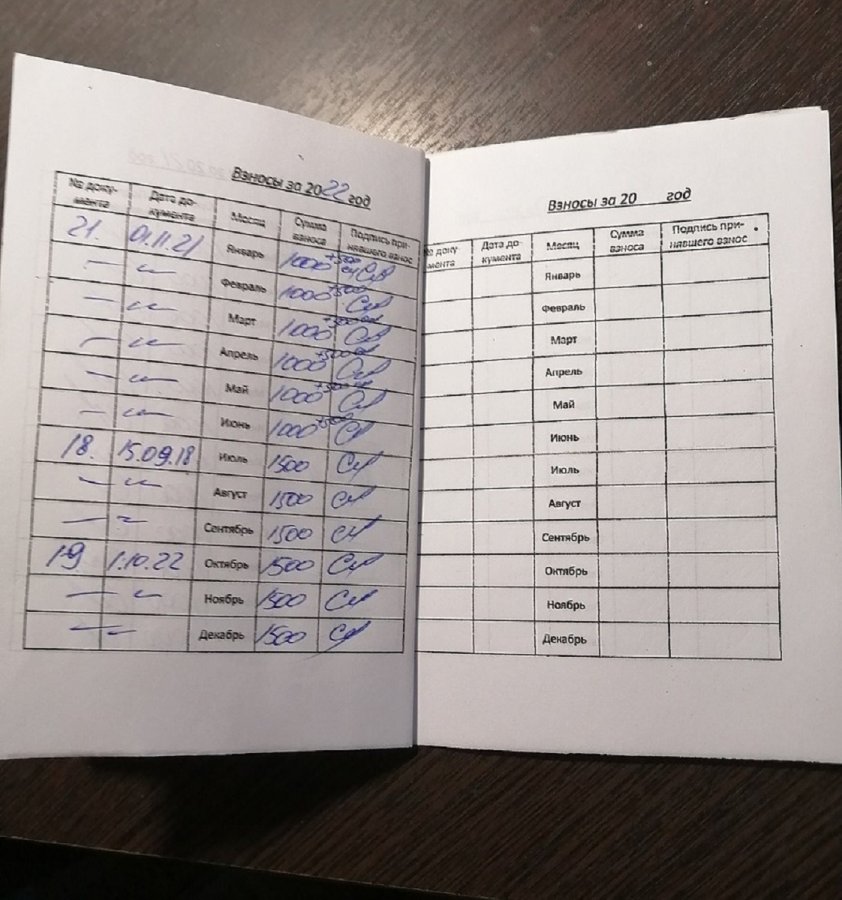 Взносы за 2022 год
№ доку- Дата до- Месяц Сумма Подпись при-
мента кумента взноса нявшего взнос
21. 01.11.21 Январь 1000 +500
— —〃— Февраль 1000 +500
— —〃— Март 1000 +500
— —〃— Апрель 1000 +500
— —〃— Май 1000 +500
— —〃— Июнь 1000 +500
18. 15.09.18 Июль 1500
— —〃— Август 1500
— —〃— Сентябрь 1500
19 1.10.22 Октябрь 1500
— —〃— Ноябрь 1500
— —〃— Декабрь 1500
Взносы за 20 год
№ доку- Дата до- Месяц Сумма Подпись при-
мента кумента взноса нявшего взнос
Январь
Февраль
Март
Апрель
Май
Июнь
Июль
Август
Сентябрь
Октябрь
Ноябрь
Декабрь